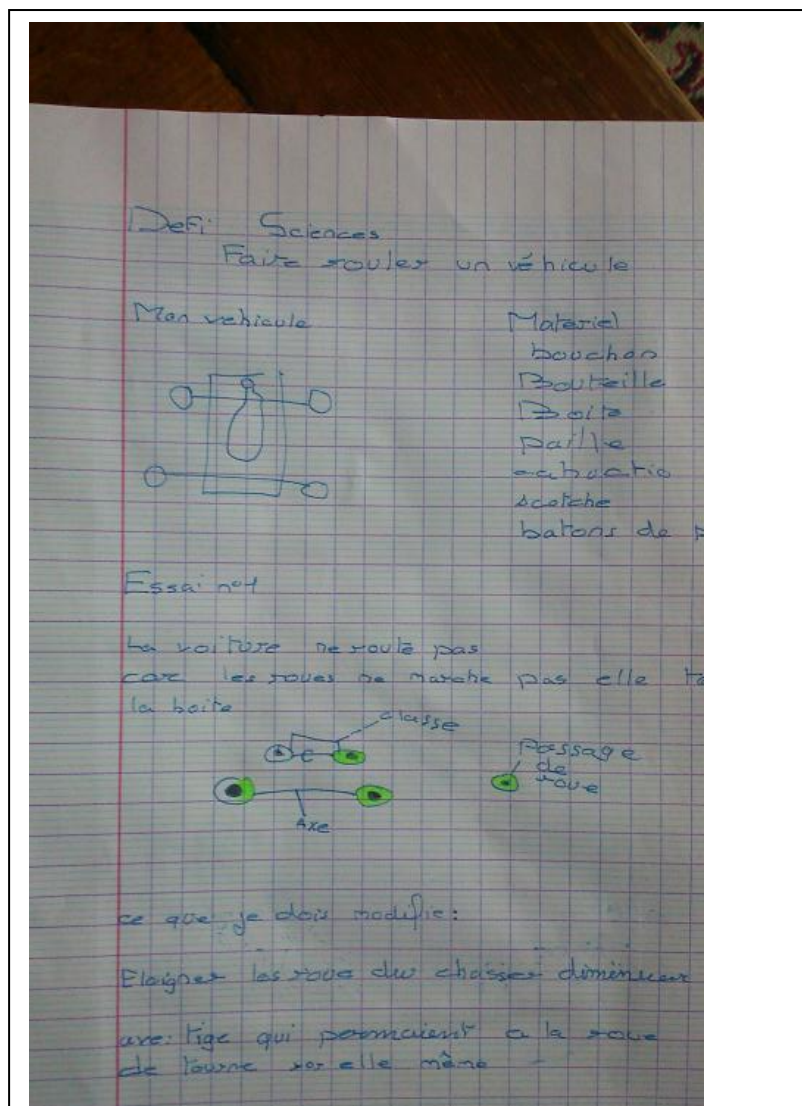 Defi Sciences
Faire rouler un véhicule
Mon vehicule
Materiel
bouchon
Bouteille
Boite
paille
scotche
batons de p
Essai n°1
La voiture ne roule pas
car les roues ne marche pas elle to
la boite
classe
C
Passage
de
roue
Axe
ce que je dois modifie:
Eloigner les roue du chasser diminuer
axe: tige qui permaient a la roue
de tourne sor elle même